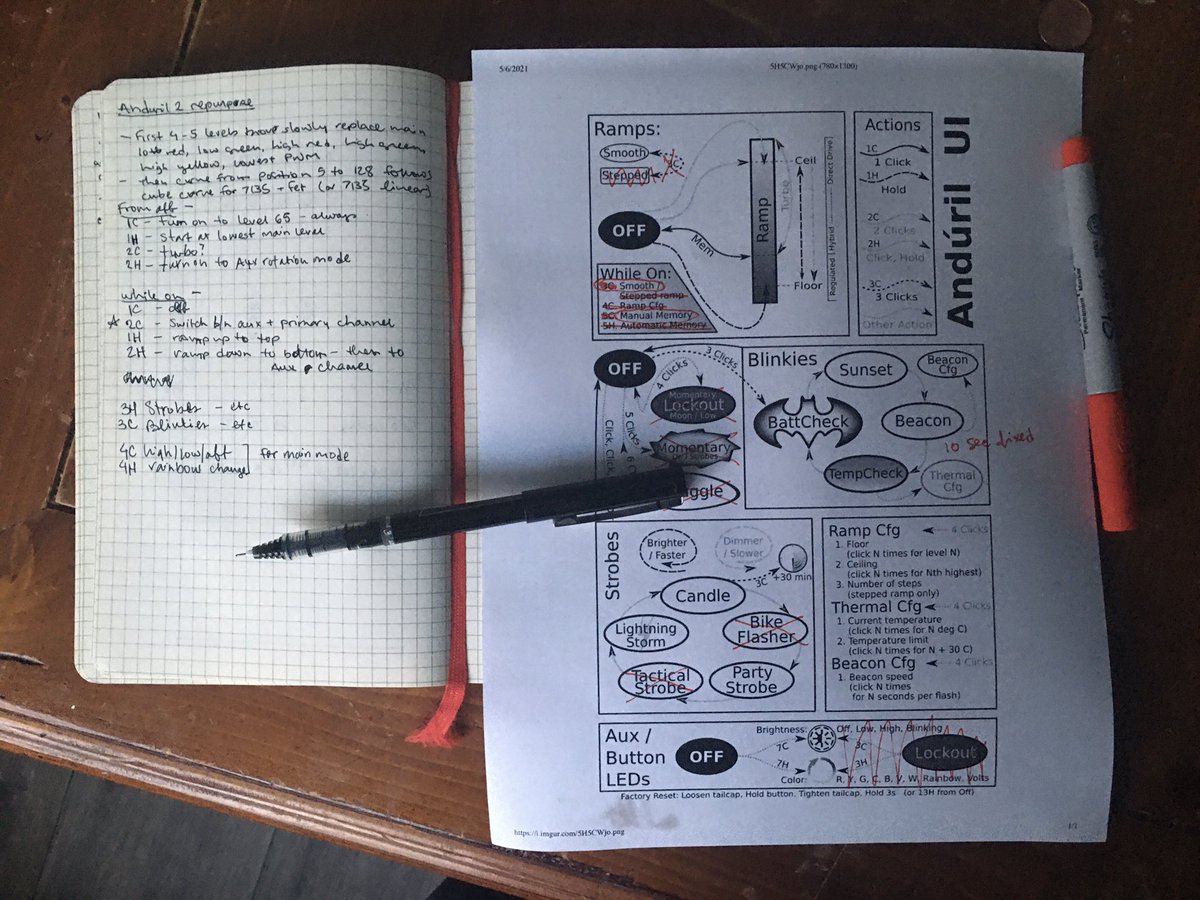 Anduril 2 repurpose
- First 4-5 levels slowly replace main
low red, low green, high red, high green
high yellow, lowest PWM
- then curve from position 5 to 128 follows
cube curve for 7135 + fet (or 7135 linear)
From off -
1C - turn on to level 65 - always
1H - start at lowest main level
2C - turbo?
2H - turn on to Aux rotation mode
while on -
1C - off
2C - Switch b/n aux + primary channel
1H - ramp up to top
2H - ramp down to bottom - then to
Aux channel
3H Strobes - etc
3C Blinkies - etc
4C high/low/off
for main mode
4H rainbow change
5/6/2021
5H5CWjo.png (780×1300)
Ramps:
Smooth
Stepped
3C
OFF
Mem
Ramp
Turbo
Ceil
Floor
Regulated | Hybrid | Direct Drive
While On:
3C: Smooth /
Stepped ramp
4C: Ramp Cfg
5C: Manual Memory
5H: Automatic Memory
Actions
1C
1 Click
1H
Hold
2C
2 Clicks
2H
Click, Hold
3C
3 Clicks
Other Action
Andúril UI
OFF
3 Clicks
4 Clicks
Momentary
Lockout
Moon / Low
5 Clicks
Click, Click,
6 C
Momentary
(w/ Strobes)
ggle
Blinkies
Sunset
Beacon
Cfg
BattCheck
Beacon
10 sec fixed
TempCheck
Thermal
Cfg
Strobes
Brighter
/ Faster
Dimmer
/ Slower
3C
+30 min
Candle
Lightning
Storm
Bike
Flasher
Tactical
Strobe
Party
Strobe
Ramp Cfg 4 Clicks
1. Floor
(click N times for level N)
2. Ceiling
(click N times for Nth highest)
3. Number of steps
(stepped ramp only)
Thermal Cfg 4 Clicks
1. Current temperature
(click N times for N deg C)
2. Temperature limit
(click N times for N + 30 C)
Beacon Cfg 4 Clicks
1. Beacon speed
(click N times
for N seconds per flash)
Aux /
Button
LEDs
OFF
7C
7H
Brightness:
Off, Low, High, Blinking
3C
3H
Lockout
Color:
R, Y, G, C, B, V, W, Rainbow, Volts
Factory Reset: Loosen tailcap, Hold button. Tighten tailcap, Hold 3s (or 13H from Off)
https://i.imgur.com/5H5CWjo.png
1/1
Permanent Marker